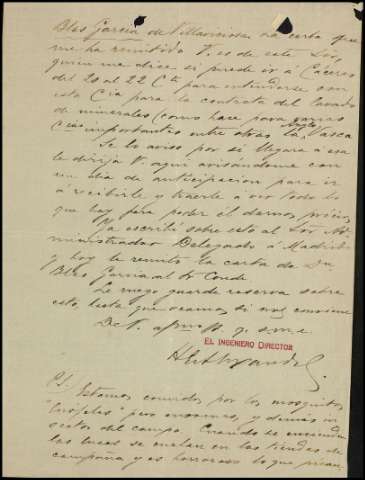 Blas García de Villaviciosa la carta que
me ha remitido V. es de este Sor,
quien me dice si puede ir á Cáceres
del 20 al 22 Cte para entenderse con
esta Cia para la contrata del lavado
de minerales (como hace para varias
Cias importantes entre otras la Vasca
Se lo aviso por si llegara á esa
le dirija V. aquí avisándome con
un día de anticipación para ir
á recibirle y traerle á ver todo lo
que hay para poder él darnos precios
Ya escribí sobre esto al Sor Ad-
ministrador Delegado á Madrid
y hoy le remito la carta de Dn
Blas García al Sr Conde
Le ruego guarde reserva sobre
esto, hasta que veamos si nos conviene
De V. afmo s. s. q. s. m. e.
EL INGENIERO DIRECTOR
P.S. Estamos comidos por los mosquitos
"Anófeles" pero enormes, y demás in-
sectos del campo. Cuando se encienden
las luces se cuelan en las tiendas de
campaña y es horroroso lo que pican,